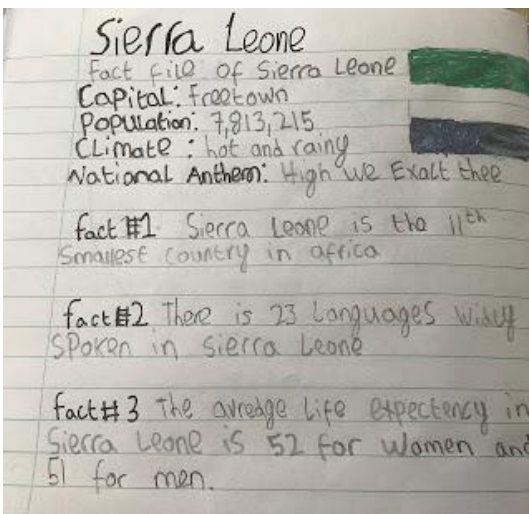 Sierra Leone
fact file of Sierra Leone
Capital: freetown
Population: 7,813,215
Climate: hot and rainy
National Anthem: High We Exalt thee
fact #1 Sierra Leone is the 11th
Smallest country in africa
fact #2 There is 23 Languages widly
Spoken in sierra Leone
fact # 3 The avredge life expectency in
Sierra Leone is 52 for women and
51 for men.